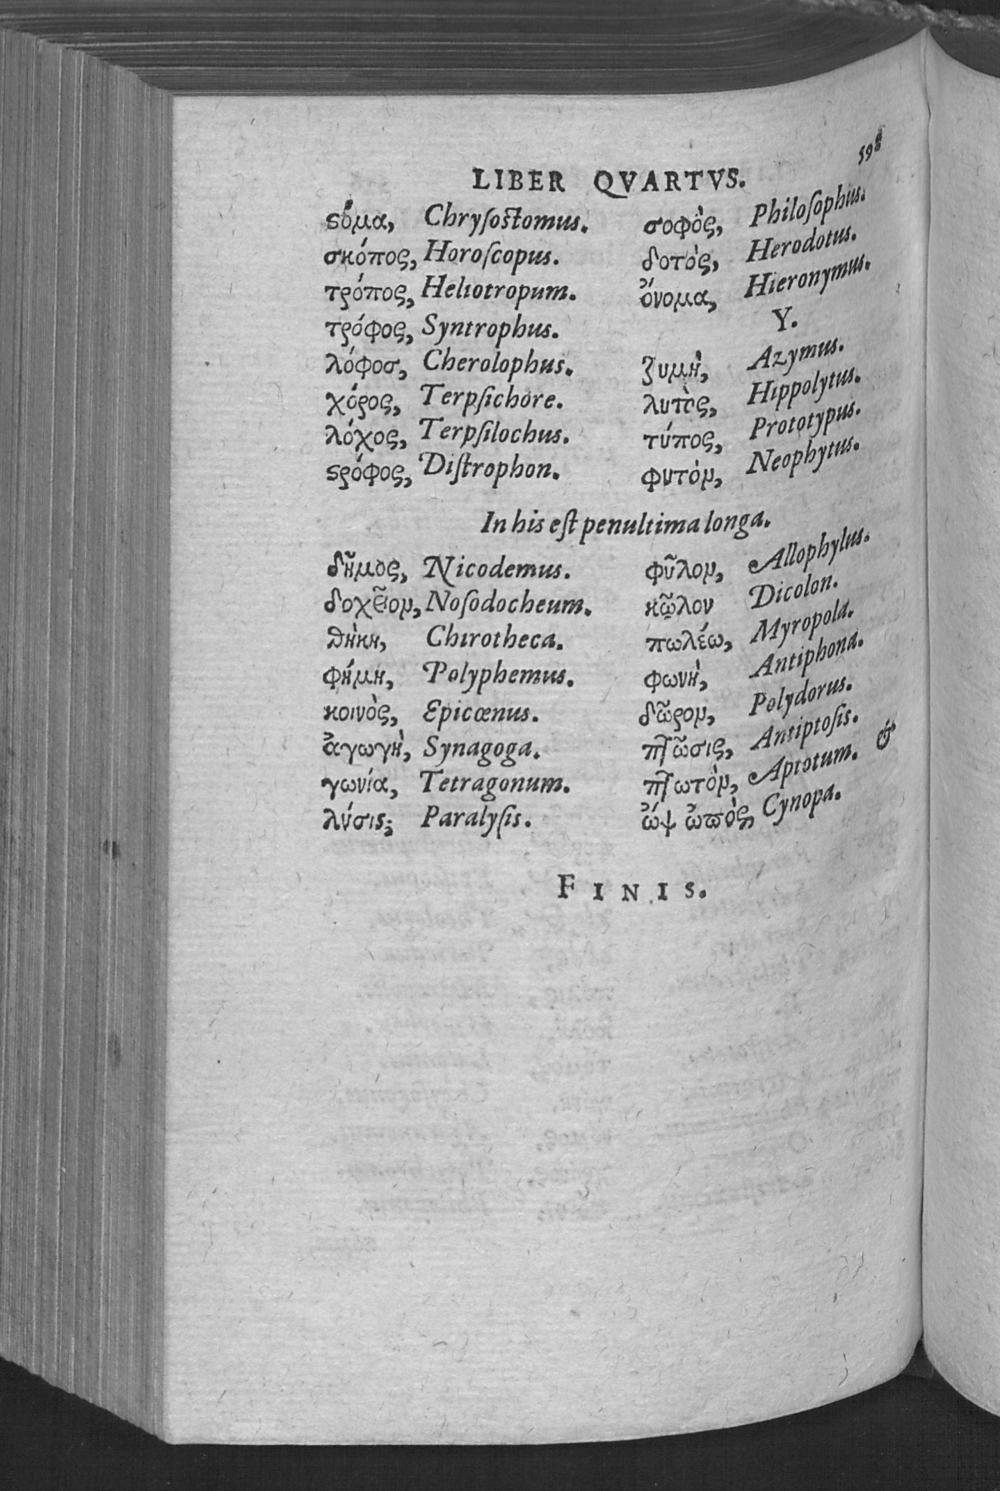 LIBER QVARTVS. 598
ϛόμα, Chryſoſtomus.
σκόπος, Horoſcopus.
τρόπος, Heliotropum.
τρόφος, Syntrophus.
λόφοσ, Cherolophus.
χόρος, Terpſichore.
λόχος, Terpſilochus.
ϛρόφος, Diſtrophon.
σοφὸς, Philoſophus.
δοτὸς, Herodotus.
ὄνομα, Hieronymus.
Y.
ζυμὴ, Azymus.
λυτὸς, Hippolytus.
τύπος, Prototypus.
φυτὸν, Neophytus.
In his eſt penultima longa.
δῆμος, Nicodemus.
δοχεῖον, Noſodocheum.
θήκη, Chirotheca.
φήμη, Polyphemus.
κοινὸς, Epicœnus.
ἀγωγὴ, Synagoga.
γωνία, Tetragonum.
λύσις; Paralyſis.
φῦλον, Allophylus.
κῶλον Dicolon.
πωλέω, Myropola.
φωνὴ, Antiphona.
δῶρον, Polydorus.
πτῶσις, Antiptoſis.
πτωτὸν, Aptotum. &
ὤψ ὠπὸς, Cynopa.
FINIS.